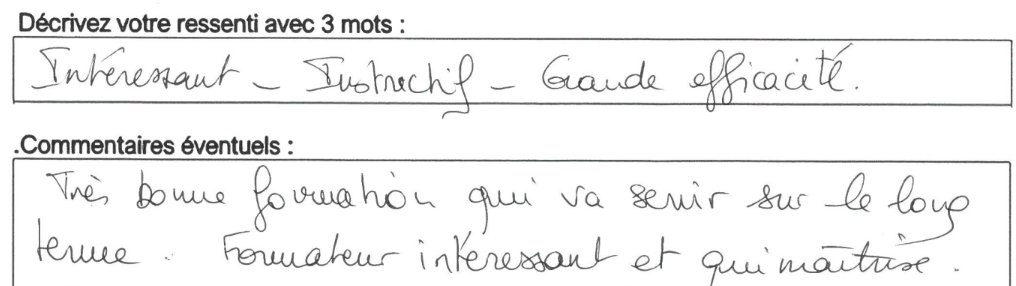 Décrivez votre ressenti avec 3 mots :
Intéressant - Instructif - Grande efficacité.
.Commentaires éventuels :
Très bonne formation qui va servir sur le long
terme. Formateur intéressant et qui maîtrise.